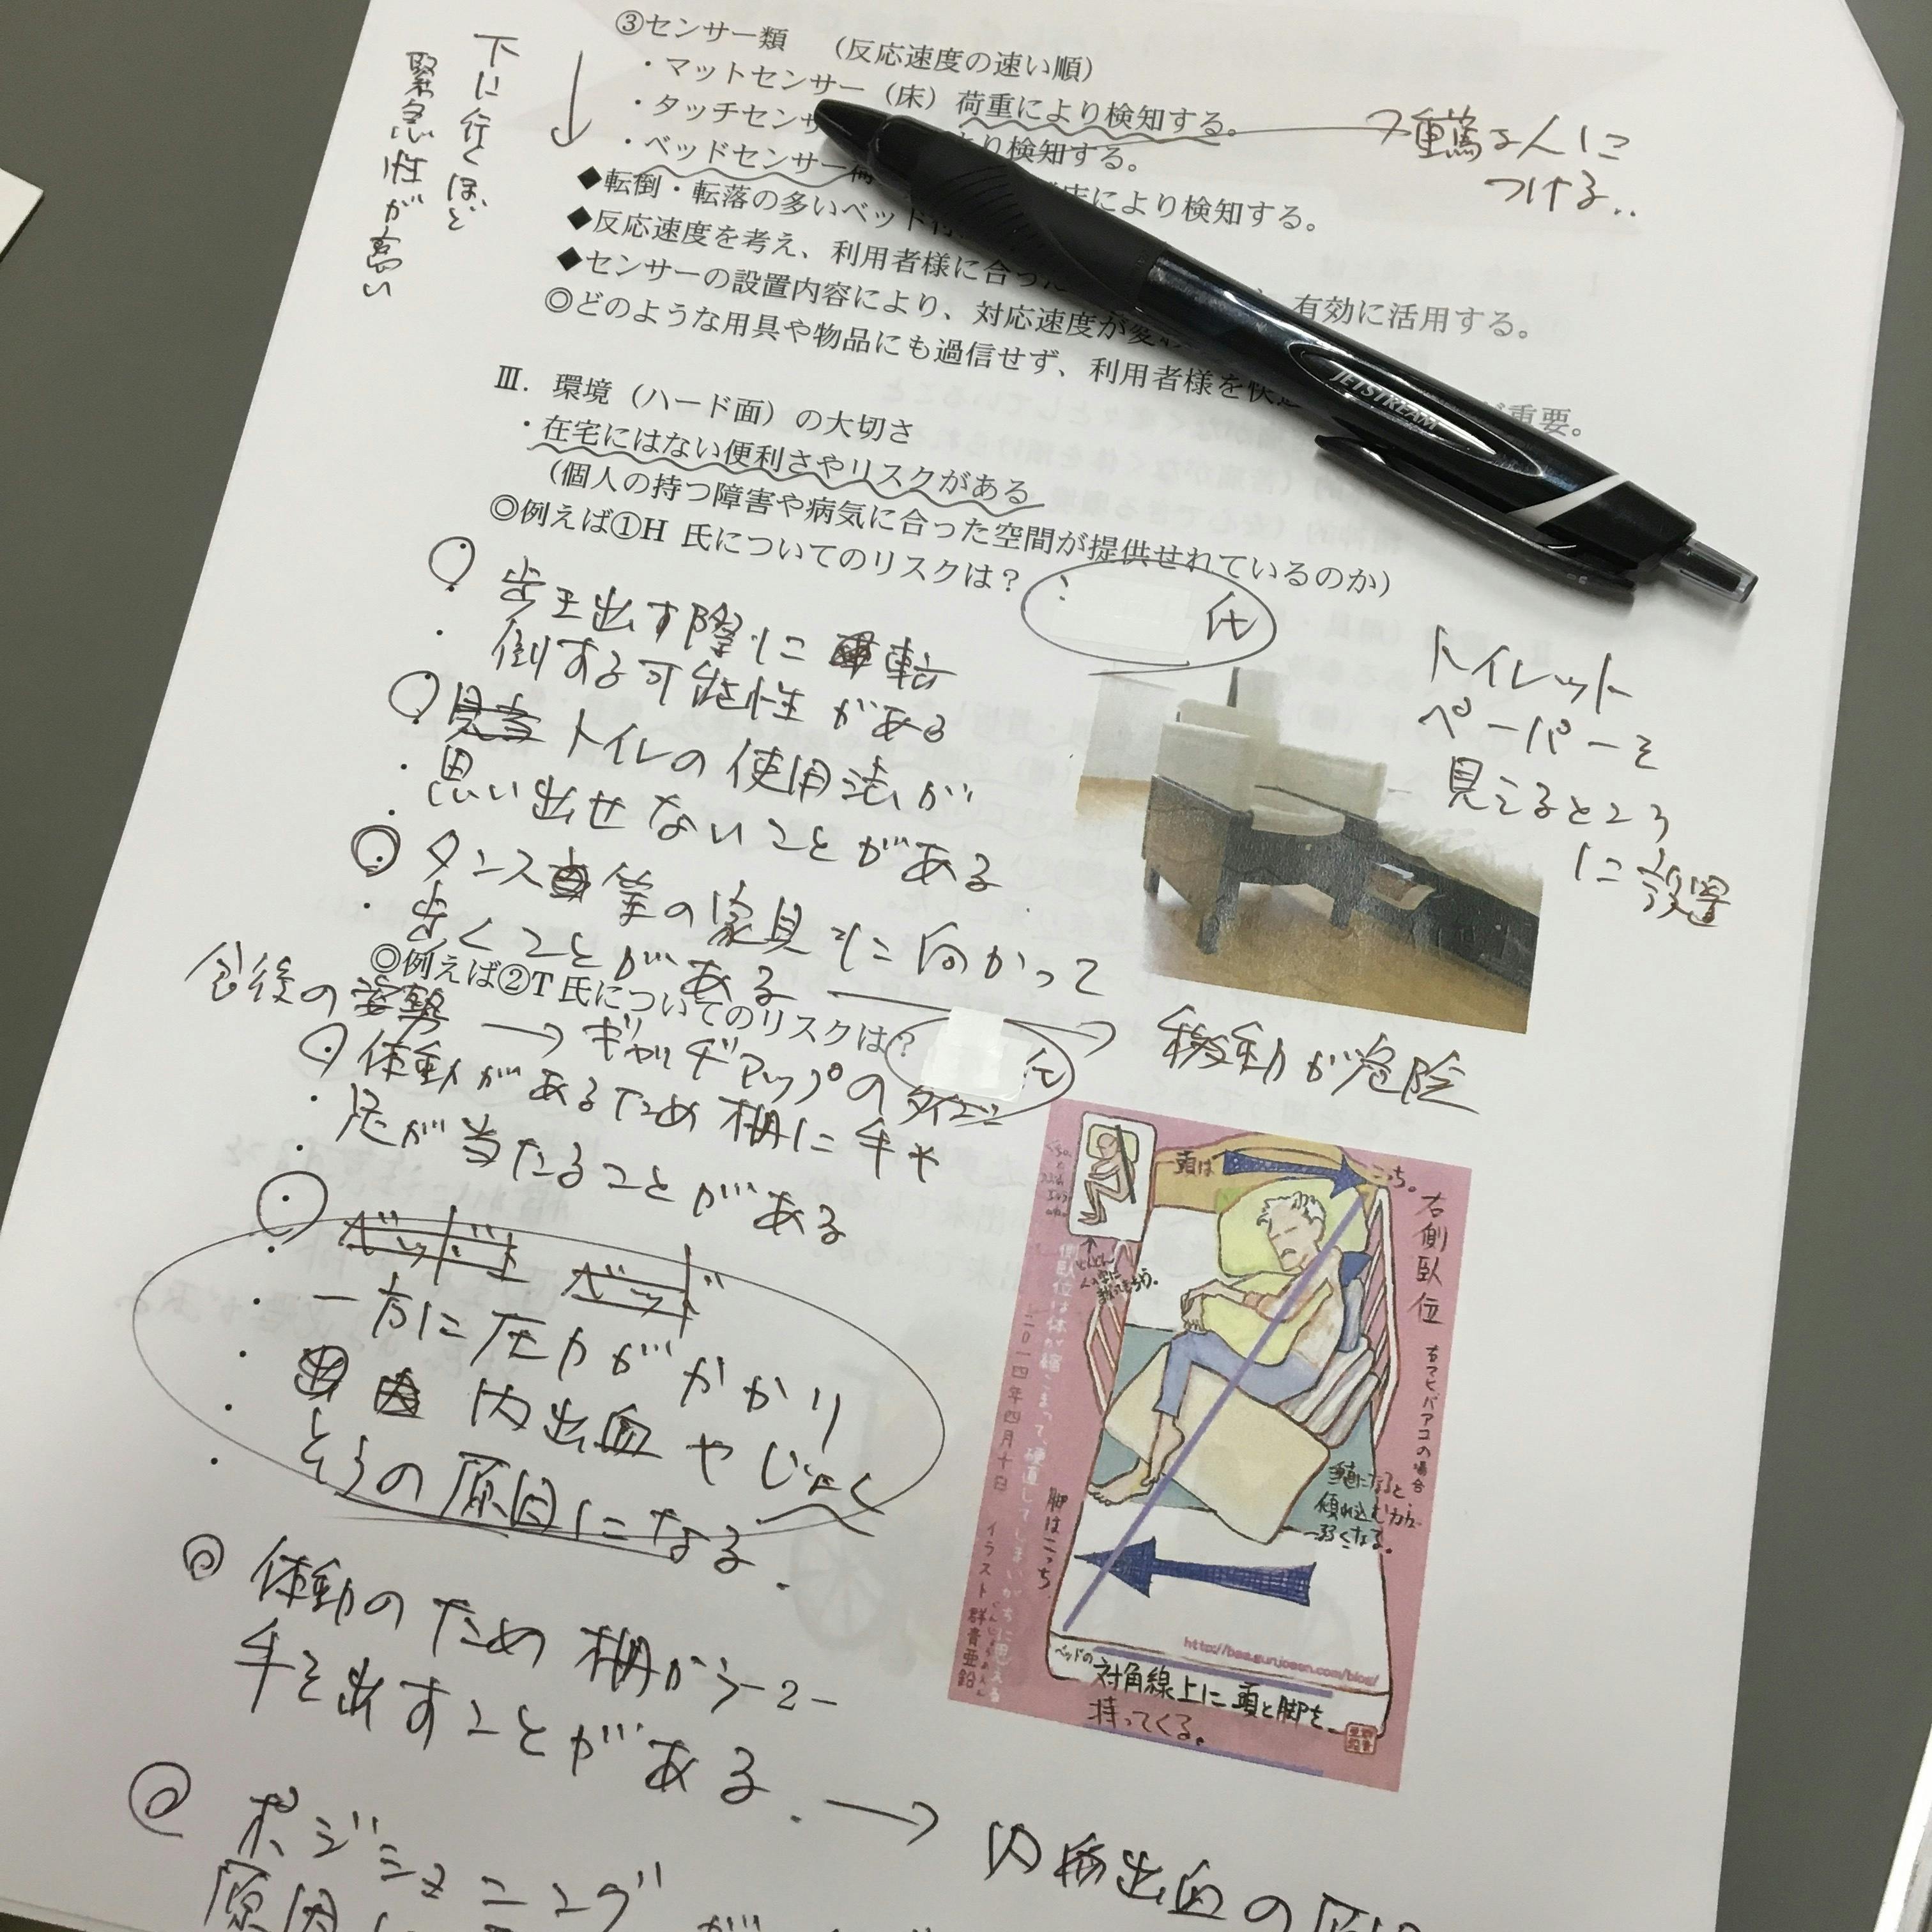 ③センサー類　（反応速度の速い順）
・マットセンサー（床）荷重により検知する。
・タッチセンサ より検知する。
・ベッドセンサー により検知する。
◆転倒・転落の多いベッド
◆反応速度を考え、利用者様に合った 有効に活用する。
◆センサーの設置内容により、対応速度が変わ
◎どのような用具や物品にも過信せず、利用者様を快 が重要。
下に行くほど
緊急性が高い
重篤な人に
つける..
JETSTREAM
Ⅲ．環境（ハード面）の大切さ
・在宅にはない便利さやリスクがある
（個人の持つ障害や病気に合った空間が提供せれているのか）
◎例えば①H 氏についてのリスクは？
氏
歩き出す際に転
倒する可能性がある
トイレの使用法が
思い出せないことがある
タンス等の家具に向かって
歩くことがある
移動が危険
トイレット
ペーパーを
見えるところ
に設置
◎例えば②T 氏についてのリスクは？
氏
食後の姿勢 → ギャッヂアップの
体動があるため柵に手や
足が当たることがある
一方に圧力がかかり
内出血やじょく
そうの原因になる.
体動のため柵から
手を出すことがある. →
-2-
ポジショニング
原因
頭は
こっち。
右側臥位
右マヒバアコの場合
側臥位は体が縮こまって、硬直してしまいがちに思える
二〇一四年四月十日　イラスト 群青亜鉛
脚はこっち
傾れ込む力が
弱くなる。
http://baa.gunjoaen.com/blog/
ベッドの対角線上に頭と脚を
持ってくる。